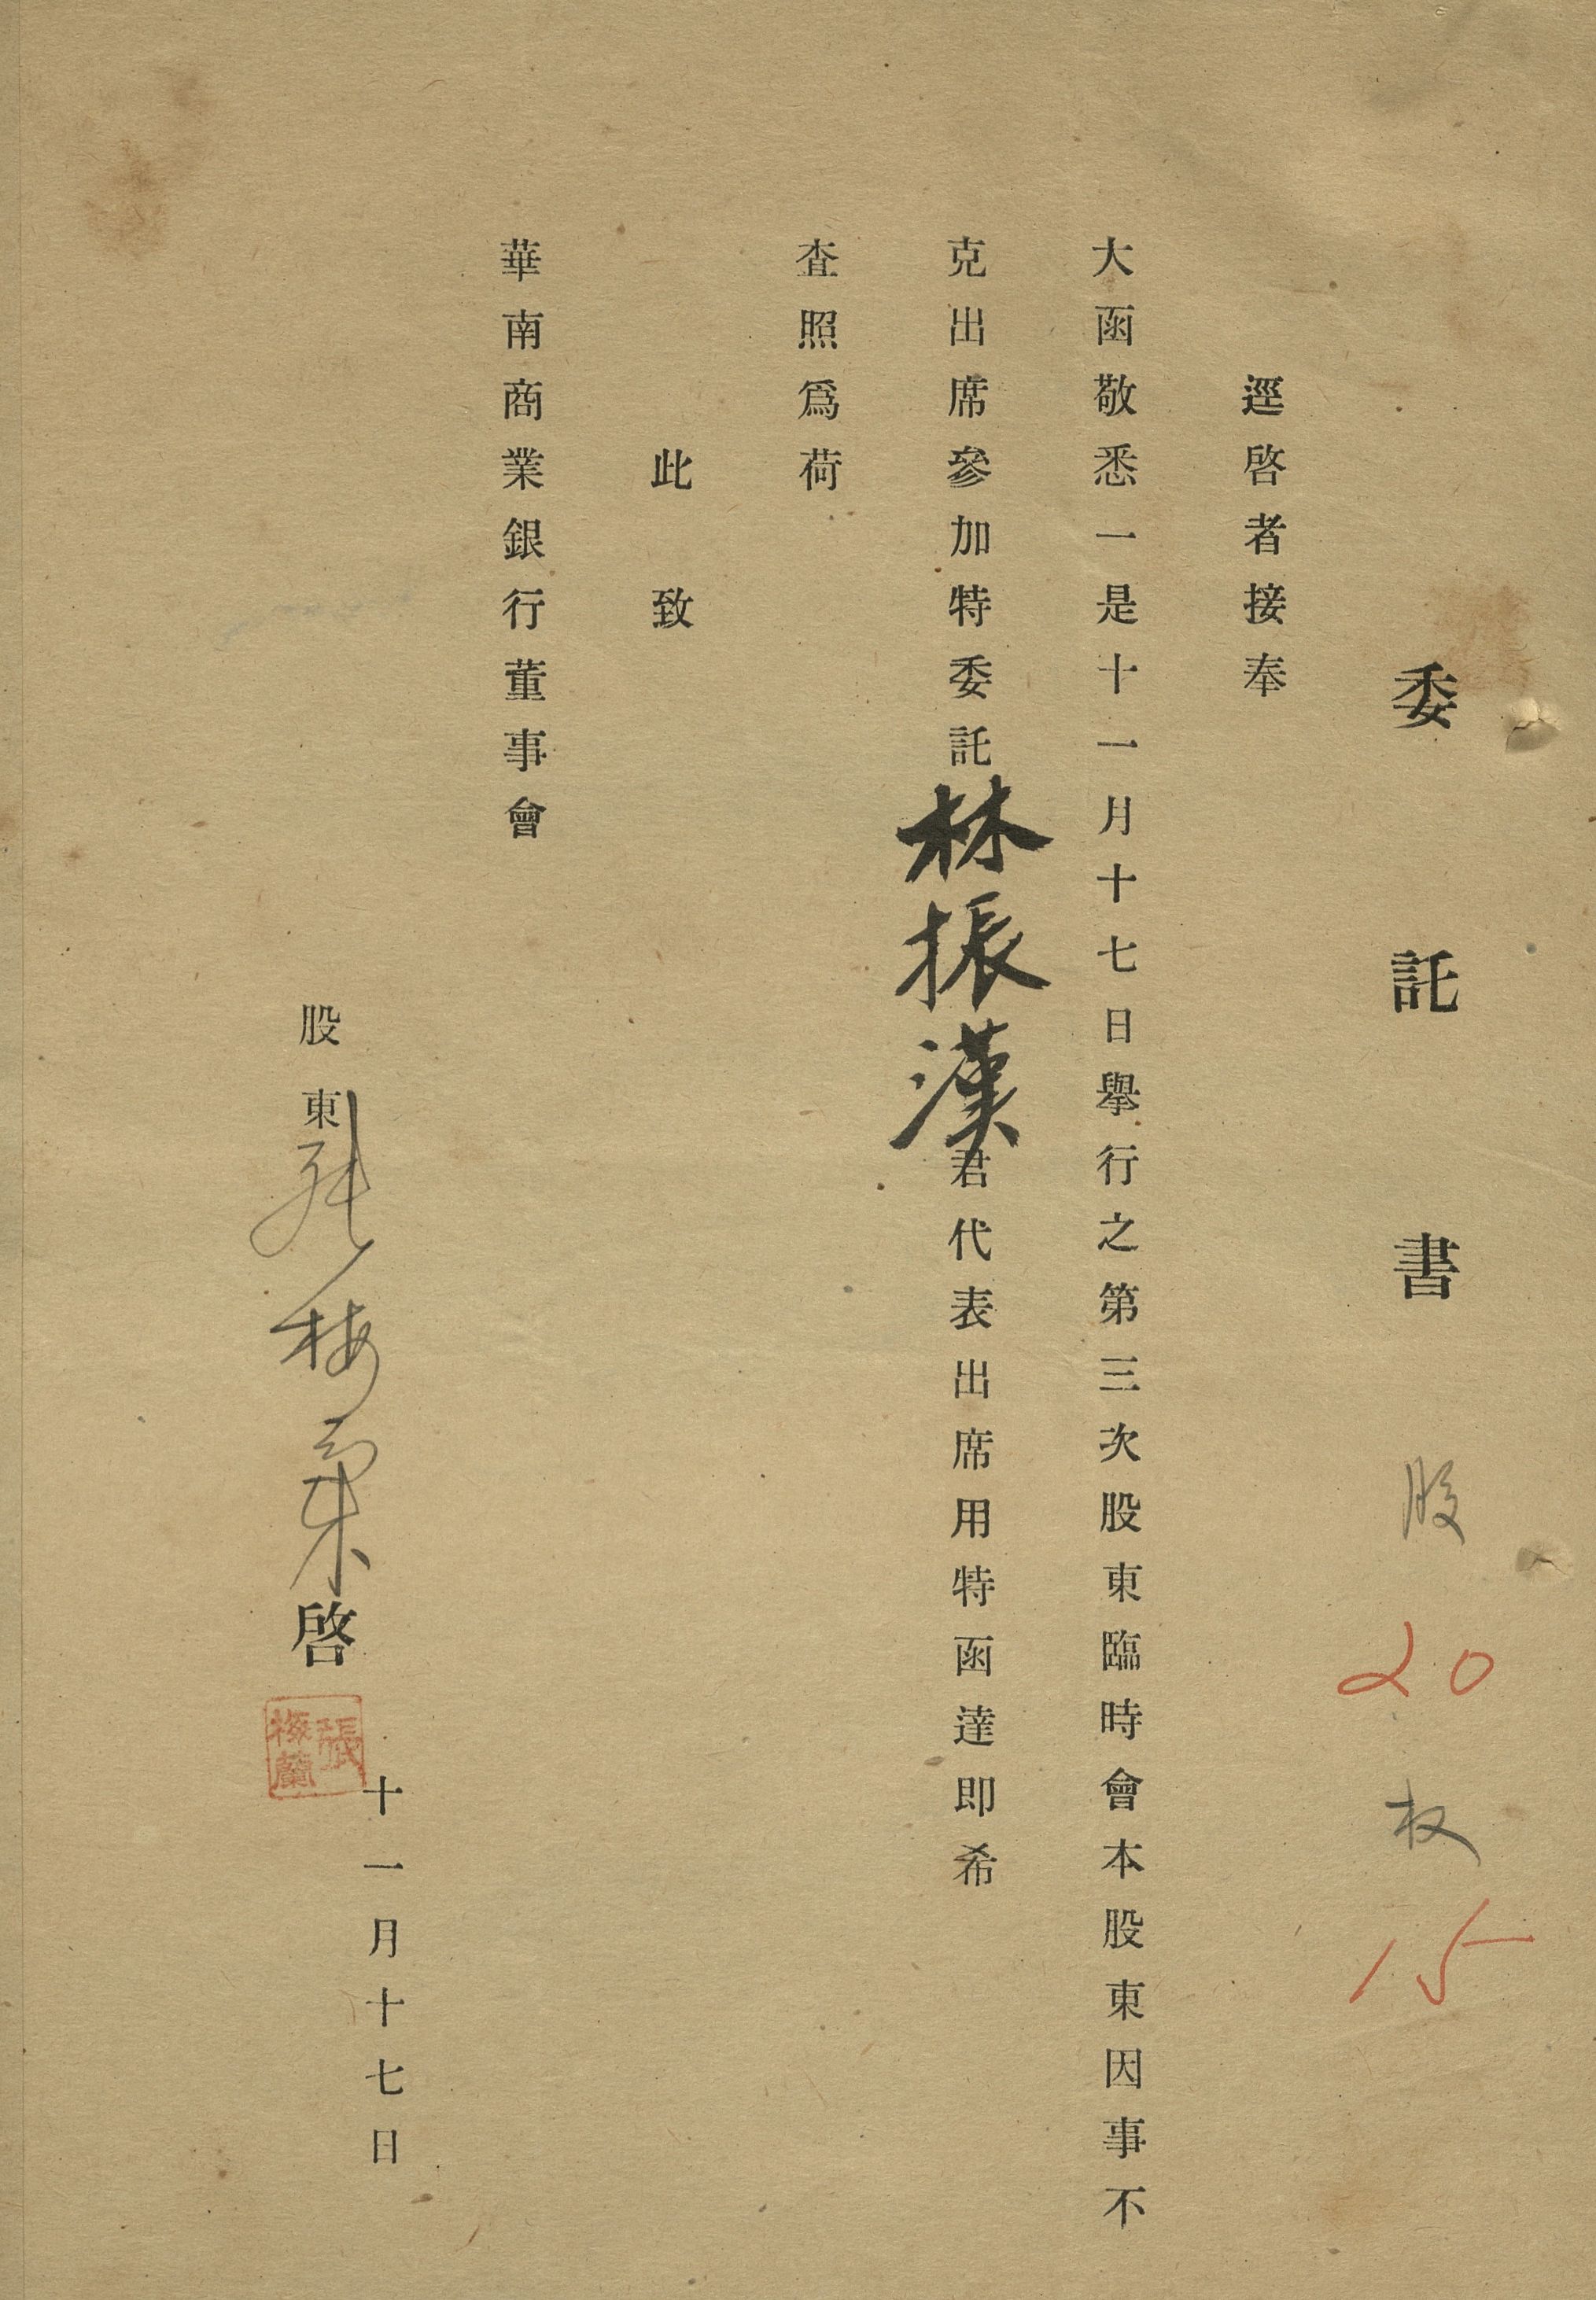 委託書 股 20 权 15
逕啓者接奉
大函敬悉一是十一月十七日舉行之第三次股東臨時會本股東因事不
克出席參加特委託林振漢君代表出席用特函達即希
查照爲荷
此致
華南商業銀行董事會
股東張梅 啓
張梅蘭
十一月十七日